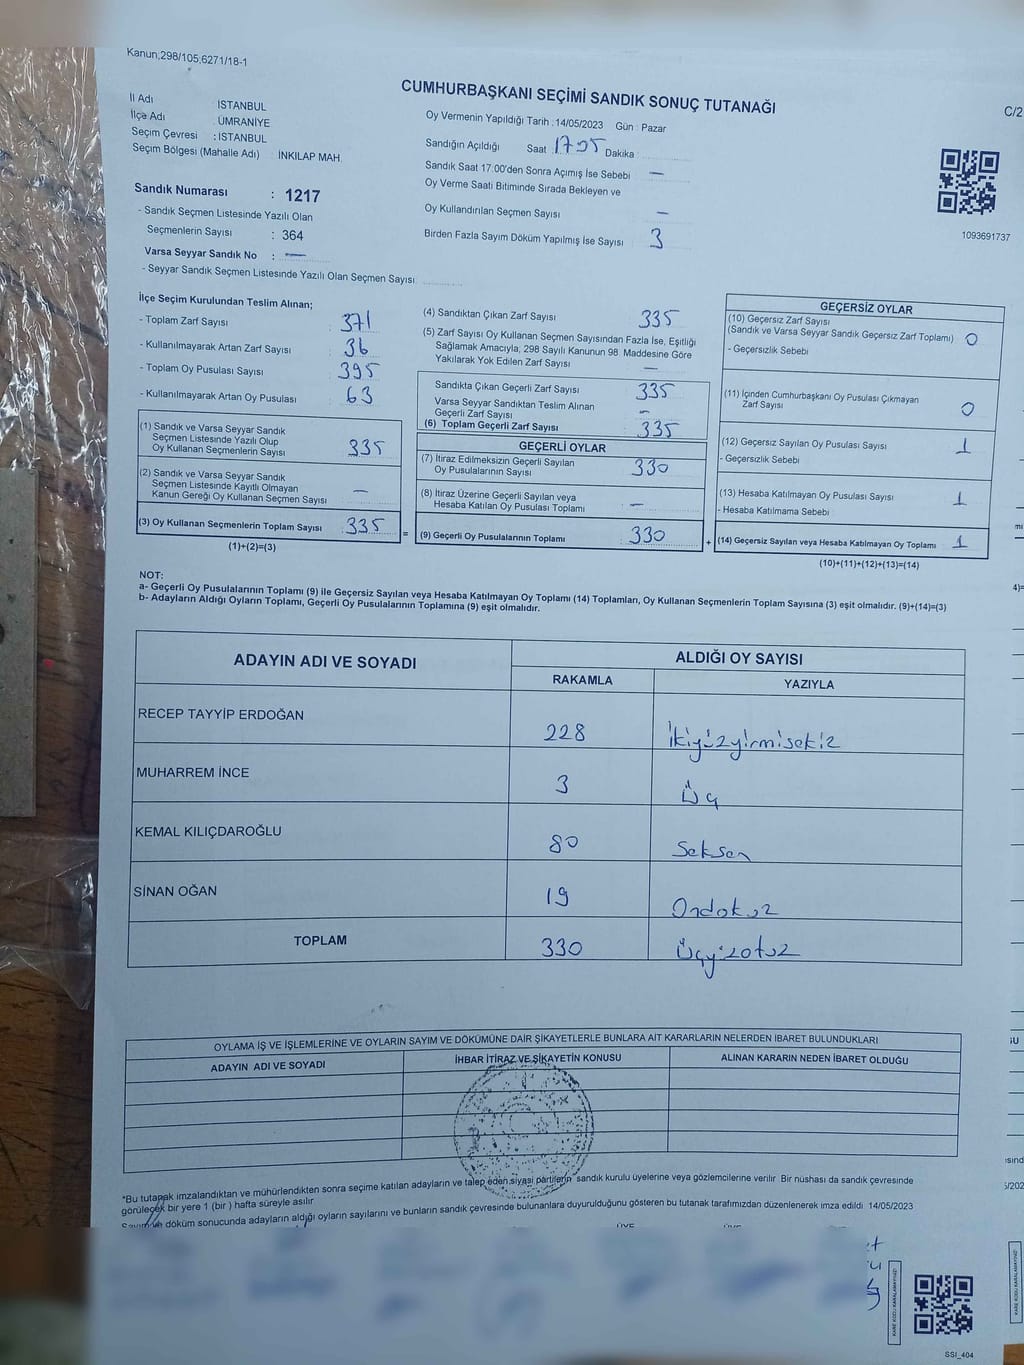 Kanun;298/105,6271/18-1
CUMHURBAŞKANI SEÇİMİ SANDIK SONUÇ TUTANAĞI
C/2
İl Adı İSTANBUL
İlçe Adı ÜMRANİYE
Seçim Çevresi : İSTANBUL
Seçim Bölgesi (Mahalle Adı) : İNKILAP MAH.
Sandık Numarası : 1217
- Sandık Seçmen Listesinde Yazılı Olan
Seçmenlerin Sayısı : 364
Varsa Seyyar Sandık No : —
- Seyyar Sandık Seçmen Listesinde Yazılı Olan Seçmen Sayısı
Oy Vermenin Yapıldığı Tarih : 14/05/2023 Gün : Pazar
Sandığın Açıldığı Saat 1705 Dakika
Sandık Saat 17:00'den Sonra Açımış İse Sebebi —
Oy Verme Saati Bitiminde Sırada Bekleyen ve
Oy Kullandırılan Seçmen Sayısı —
Birden Fazla Sayım Döküm Yapılmış İse Sayısı 3
1093691737
İlçe Seçim Kurulundan Teslim Alınan;
- Toplam Zarf Sayısı : 371
- Kullanılmayarak Artan Zarf Sayısı : 36
- Toplam Oy Pusulası Sayısı : 395
- Kullanılmayarak Artan Oy Pusulası : 63
(1) Sandık ve Varsa Seyyar Sandık
Seçmen Listesinde Yazılı Olup
Oy Kullanan Seçmenlerin Sayısı 335
(2) Sandık ve Varsa Seyyar Sandık
Seçmen Listesinde Kayıtlı Olmayan
Kanun Gereği Oy Kullanan Seçmen Sayısı —
(3) Oy Kullanan Seçmenlerin Toplam Sayısı 335
(1)+(2)=(3)
=
(4) Sandıktan Çıkan Zarf Sayısı 335
(5) Zarf Sayısı Oy Kullanan Seçmen Sayısından Fazla İse, Eşitliği
Sağlamak Amacıyla, 298 Sayılı Kanunun 98 Maddesine Göre
Yakılarak Yok Edilen Zarf Sayısı —
Sandıkta Çıkan Geçerli Zarf Sayısı 335
Varsa Seyyar Sandıktan Teslim Alınan
Geçerli Zarf Sayısı —
(6) Toplam Geçerli Zarf Sayısı 335
GEÇERLİ OYLAR
(7) İtiraz Edilmeksizin Geçerli Sayılan
Oy Pusulalarının Sayısı 330
(8) İtiraz Üzerine Geçerli Sayılan veya
Hesaba Katılan Oy Pusulası Toplamı —
(9) Geçerli Oy Pusulalarının Toplamı 330
+
GEÇERSİZ OYLAR
(10) Geçersiz Zarf Sayısı
(Sandık ve Varsa Seyyar Sandık Geçersiz Zarf Toplamı) 0
- Geçersizlik Sebebi
(11) İçinden Cumhurbaşkanı Oy Pusulası Çıkmayan
Zarf Sayısı 0
(12) Geçersiz Sayılan Oy Pusulası Sayısı 1
- Geçersizlik Sebebi
(13) Hesaba Katılmayan Oy Pusulası Sayısı 1
- Hesaba Katılmama Sebebi
(14) Geçersiz Sayılan veya Hesaba Katılmayan Oy Toplamı 1
(10)+(11)+(12)+(13)=(14)
NOT:
a- Geçerli Oy Pusulalarının Toplamı (9) ile Geçersiz Sayılan veya Hesaba Katılmayan Oy Toplamı (14) Toplamları, Oy Kullanan Seçmenlerin Toplam Sayısına (3) eşit olmalıdır. (9)+(14)=(3)
b- Adayların Aldığı Oyların Toplamı, Geçerli Oy Pusulalarının Toplamına (9) eşit olmalıdır.
ADAYIN ADI VE SOYADI ALDIĞI OY SAYISI
RAKAMLA YAZIYLA
RECEP TAYYİP ERDOĞAN 228 İkiyüzyirmisekiz
MUHARREM İNCE 3 Üç
KEMAL KILIÇDAROĞLU 80 Seksen
SİNAN OĞAN 19 Ondokuz
TOPLAM 330 Üçyüzotuz
OYLAMA İŞ VE İŞLEMLERİNE VE OYLARIN SAYIM VE DÖKÜMÜNE DAİR ŞİKAYETLERLE BUNLARA AİT KARARLARIN NELERDEN İBARET BULUNDUKLARI
ADAYIN ADI VE SOYADI İHBAR İTİRAZ VE ŞİKAYETİN KONUSU ALINAN KARARIN NEDEN İBARET OLDUĞU
*Bu tutanak imzalandıktan ve mühürlendikten sonra seçime katılan adayların ve talep eden siyasi partilerin sandık kurulu üyelerine veya gözlemcilerine verilir. Bir nüshası da sandık çevresinde
görülecek bir yere 1 (bir ) hafta süreyle asılır.
Sayım ve döküm sonucunda adayların aldığı oyların sayılarını ve bunların sandık çevresinde bulunanlara duyurulduğunu gösteren bu tutanak tarafımızdan düzenlenerek imza edildi 14/05/2023
KARE KODU KARALAMAYINIZ!
SSI_404